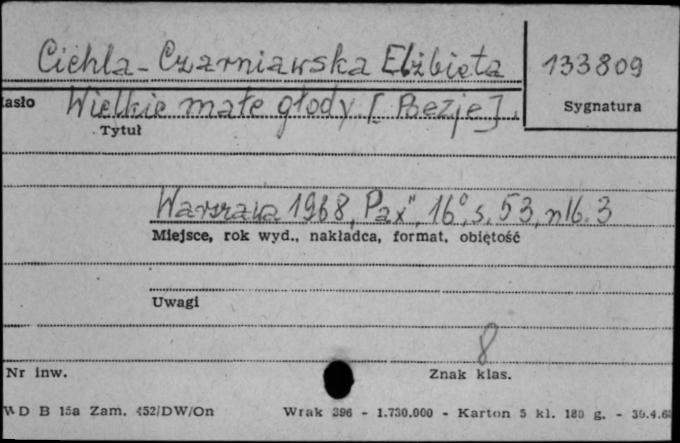 Cichla-Czarniawska Elżbieta 133809
asło Wielkie małe głody. [Poezje]. Sygnatura
Tytuł
Warszawa 1968, "Pax", 16°, s. 53, nlb. 3
Miejsce, rok wyd., nakładca, format, objętość
Uwagi
8
Nr inw. Znak klas.
WD B 15a Zam. 452/DW/On Wrak 396 - 1.730.000 - Karton 5 kl. 180 g. - 30.4.68